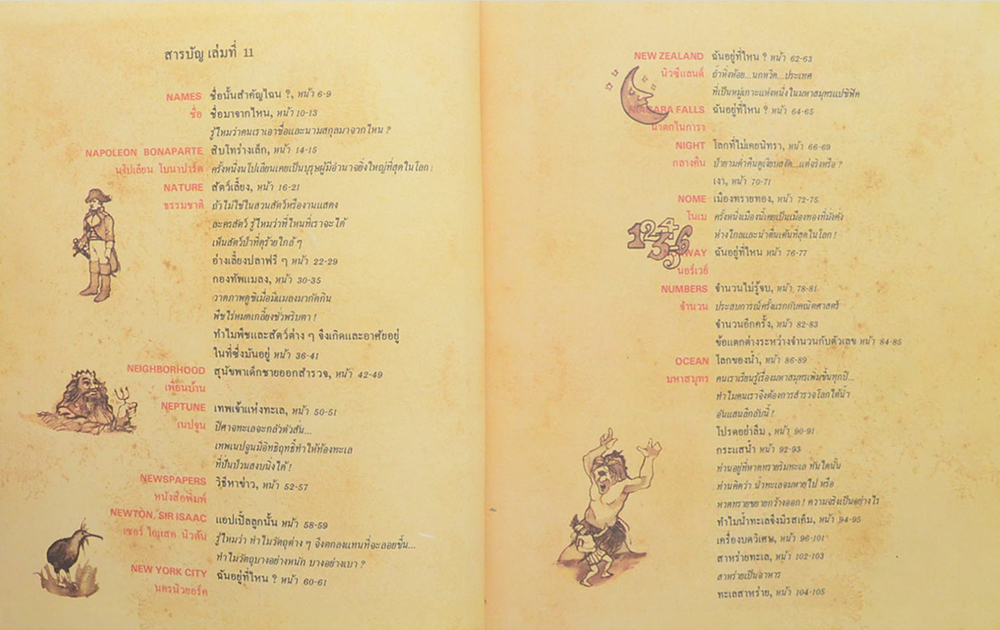 สารบัญ เล่มที่ 11
NAMES ชื่อนั้นสำคัญไฉน ?, หน้า 6-9
ชื่อ ชื่อมาจากไหน, หน้า 10-13
รู้ไหมว่าคนเราเอาชื่อและนามสกุลมาจากไหน ?
NAPOLEON BONAPARTE สิบโทร่างเล็ก, หน้า 14-15
นโปเลียน โบนาปาร์ต ครั้งหนึ่งนโปเลียนเคยเป็นบุรุษผู้มีอำนาจยิ่งใหญ่ที่สุดในโลก !
NATURE สัตว์เลี้ยง, หน้า 16-21
ธรรมชาติ ถ้าไม่ใช่ในสวนสัตว์หรืองานแสดง
ละครสัตว์ รู้ไหมว่าที่ไหนที่เราจะได้
เห็นสัตว์ป่าที่ดุร้ายใกล้ ๆ
อ่างเลี้ยงปลาฟรี ๆ หน้า 22-29
กองทัพแมลง, หน้า 30-35
วาดภาพดูซิเมื่อมีแมลงมากัดกิน
พืชไร่หมดเกลี้ยงชั่วพริบตา !
ทำไมพืชและสัตว์ต่าง ๆ จึงเกิดและอาศัยอยู่
ในที่ซึ่งมันอยู่ หน้า 36-41
NEIGHBORHOOD สุนัขพาเด็กชายออกสำรวจ, หน้า 42-49
เพื่อนบ้าน
NEPTUNE เทพเจ้าแห่งทะเล, หน้า 50-51
เนปจูน ปีศาจทะเลจะกลัวตัวสั่น...
เทพเนปจูนมีอิทธิฤทธิ์ทำให้ท้องทะเล
ที่ปั่นป่วนสงบนิ่งได้ !
NEWSPAPERS วิธีหาข่าว, หน้า 52-57
หนังสือพิมพ์
NEWTON, SIR ISAAC แอปเปิ้ลลูกนั้น หน้า 58-59
เซอร์ ไอแสค นิวตัน รู้ไหมว่า ทำไมวัตถุต่าง ๆ จึงตกลงแทนที่จะลอยขึ้น...
ทำไมวัตถุบางอย่างหนัก บางอย่างเบา ?
NEW YORK CITY ฉันอยู่ที่ไหน ? หน้า 60-61
นครนิวยอร์ค
NEW ZEALAND ฉันอยู่ที่ไหน ? หน้า 62-63
นิวซีแลนด์ ถ้ำหิ่งห้อย...นกหวีด...ประเทศ
ที่เป็นหมู่เกาะแห่งหนึ่ง ในมหาสมุทรแปซิฟิค
NIAGARA FALLS ฉันอยู่ที่ไหน ? หน้า 64-65
น้ำตกไนการา
NIGHT โลกที่ไม่เคยนิทรา, หน้า 66-69
กลางคืน ป่ายามค่ำคืนดูเงียบสงัด...แต่จริงหรือ ?
เงา, หน้า 70-71
NOME เมืองทรายทอง, หน้า 72-75
โนเม ครั้งหนึ่งเมืองนี้เคยเป็นเมืองทองที่มั่งคั่ง
ห่างไกลและน่าตื่นเต้นที่สุดในโลก !
NORWAY ฉันอยู่ที่ไหน หน้า 76-77
นอร์เวย์
NUMBERS จำนวนไม่รู้จบ, หน้า 78-81
จำนวน ประสบการณ์ครั้งแรกกับคณิตศาสตร์
จำนวนอีกครั้ง, หน้า 82-83
ข้อแตกต่างระหว่างจำนวนกับตัวเลข หน้า 84-85
OCEAN โลกของน้ำ, หน้า 86-89
มหาสมุทร คนเราเรียนรู้เรื่องมหาสมุทรเพิ่มขึ้นทุกปี...
ทำไมคนเราจึงต้องการสำรวจโลกใต้น้ำ
อันแสนลึกลับนี้ !
โปรดอย่าลืม, หน้า 90-91
กระแสน้ำ หน้า 92-93
ท่านอยู่ที่หาดทรายริมทะเล ทันใดนั้น
ท่านคิดว่า น้ำทะเลจมหายไป หรือ
หาดทรายขยายกว้างออก ! ความจริงเป็นอย่างไร
ทำไมน้ำทะเลจึงมีรสเค็ม, หน้า 94-95
เครื่องบดวิเศษ, หน้า 96-101
สาหร่ายทะเล, หน้า 102-103
สาหร่ายเป็นอาหาร
ทะเลสาหร่าย, หน้า 104-105